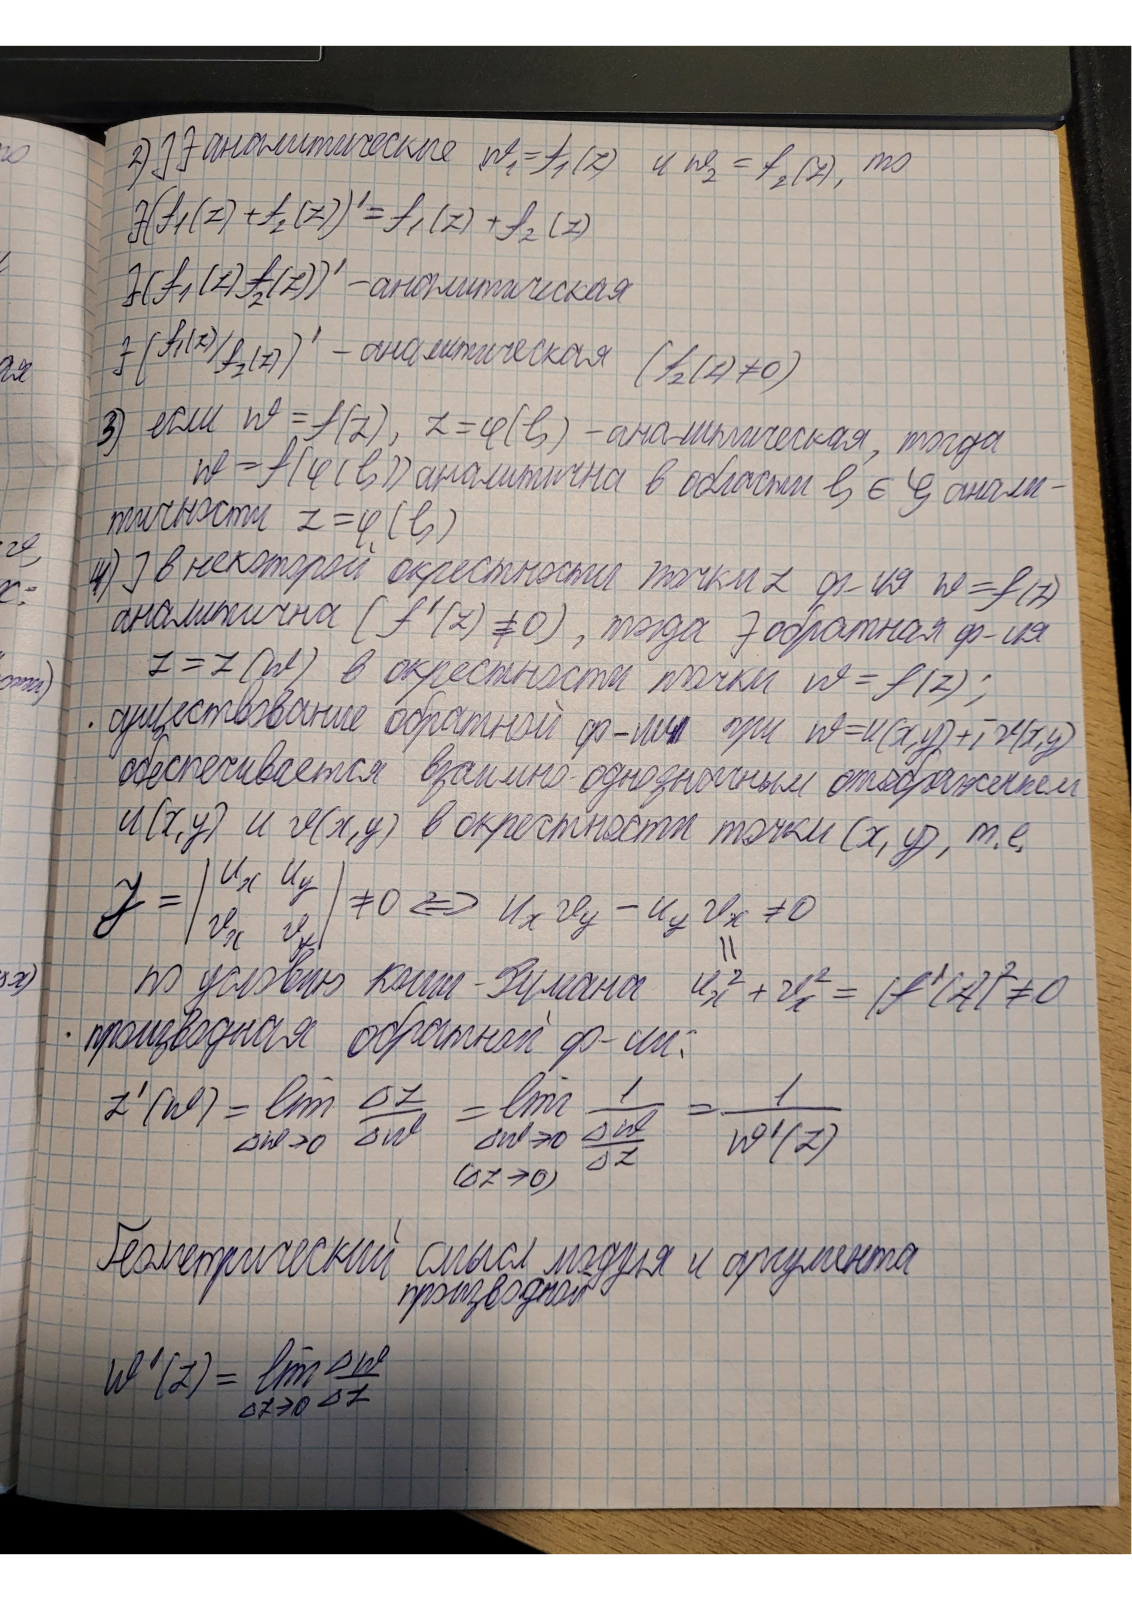 2) ] ∃ аналитические w₁=f₁(z) и w₂=f₂(z), то
∃(f₁(z)+f₂(z))'=f₁(z)+f₂(z)
∃(f₁(z)f₂(z))' – аналитическая
∃(f₁(z)/f₂(z))' – аналитическая (f₂(z)≠0)
3) если w=f(z), z=φ(ξ) – аналитическая, тогда
w=f(φ(ξ)) аналитична в области ξ ∈ анали-
тичности z=φ(ξ)
4) ] в некоторой окрестности точки z ф-ия w=f(z)
аналитична (f'(z)≠0), тогда ∃ обратная ф-ия
z=z(w) в окрестности точки w=f(z);
· существование обратной ф-ии при w=u(x,y)+iv(x,y)
обеспечивается взаимно-однозначным отображением
u(x,y) и v(x,y) в окрестности точки (x,y), т.е.
J = |uₓ u_y; vₓ v_y| ≠0 <=> uₓv_y – u_yvₓ≠0
||
по условию Коши-Римана uₓ²+vₓ²=|f'(z)|²≠0
· производная обратной ф-ии:
z'(w) = lim Δw→0 Δz/Δw = lim Δw→0 (Δz→0) 1/(Δw/Δz) = 1/w'(z)
Геометрический смысл модуля и аргумента
производной
w'(z) = lim Δz→0 Δw/Δz